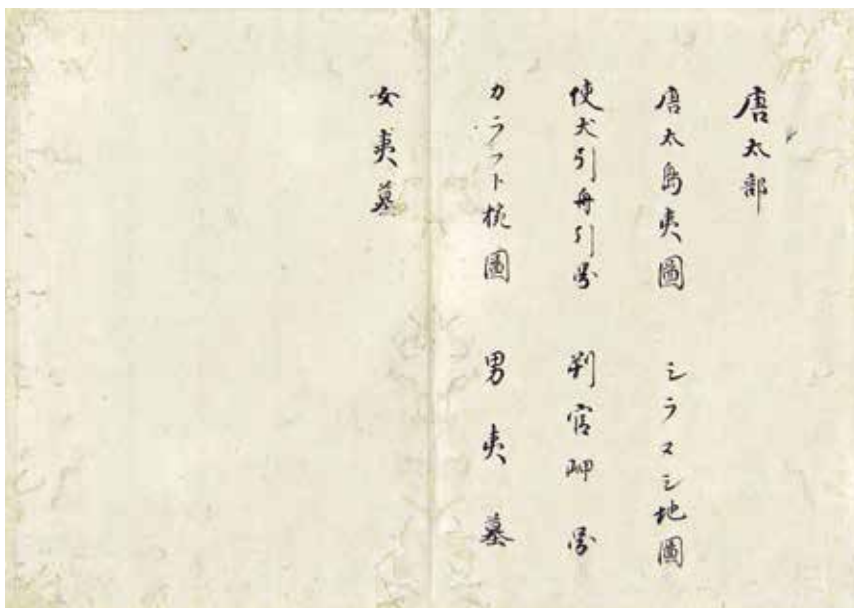 唐太部
唐太島夷圖　シラヌシ地圖
使犬引舟引図　判官岬図
カラフト椀圖　男夷墓
女夷墓